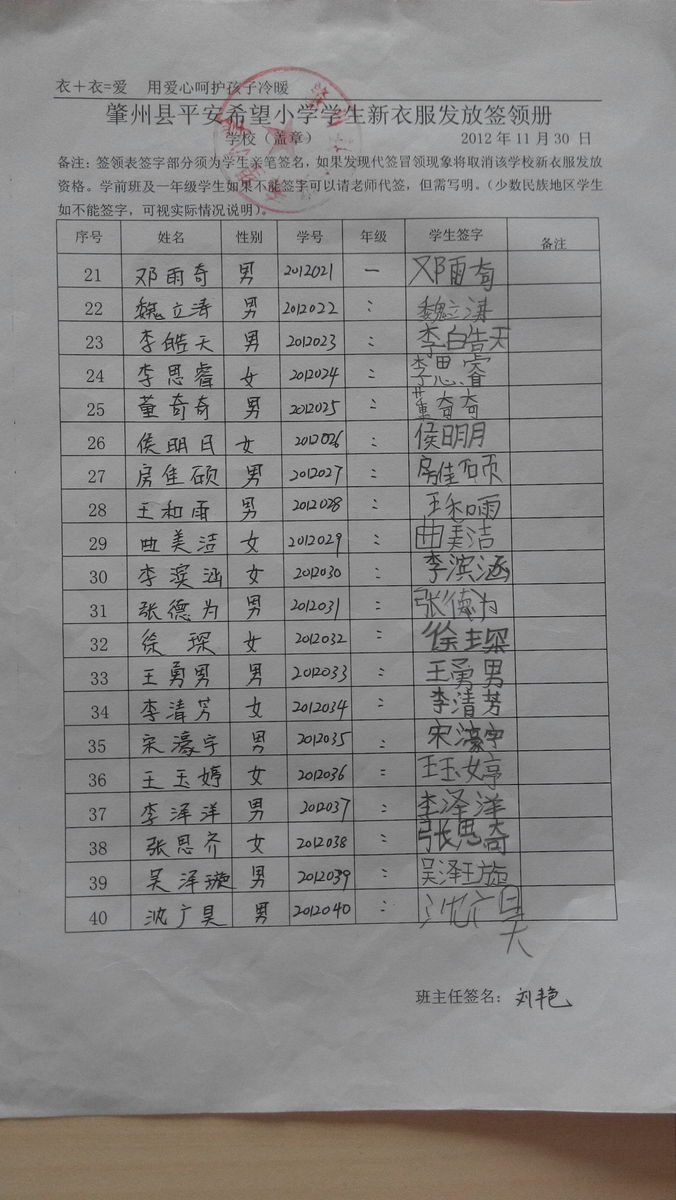 衣＋衣=爱 用爱心呵护孩子冷暖
肇州县平安希望小学学生新衣服发放签领册
学校（盖章） 2012 年 11 月 30 日
备注：签领表签字部分须为学生亲笔签名，如果发现代签冒领现象将取消该学校新衣服发放
资格。学前班及一年级学生如果不能签字可以请老师代签，但需写明。（少数民族地区学生
如不能签字，可视实际情况说明）。
序号 姓名 性别 学号 年级 学生签字 备注
21 邓雨奇 男 2012021 一 邓雨奇
22 魏立涛 男 2012022 二 魏立涛
23 李皓天 男 2012023 二 李皓天
24 李思睿 女 2012024 二 李思睿
25 董奇奇 男 2012025 二 董奇奇
26 侯明月 女 2012026 二 侯明月
27 房佳硕 男 2012027 二 房佳硕
28 王和雨 男 2012028 二 王和雨
29 曲美洁 女 2012029 二 曲美洁
30 李滨涵 女 2012030 二 李滨涵
31 张德为 男 2012031 二 张德为
32 徐琛 女 2012032 二 徐琛
33 王勇男 男 2012033 二 王勇男
34 李清芳 女 2012034 二 李清芳
35 宋濠宇 男 2012035 二 宋濠宇
36 王玉婷 女 2012036 二 王玉婷
37 李泽洋 男 2012037 二 李泽洋
38 张思齐 女 2012038 二 张思奇
39 吴泽璇 男 2012039 二 吴泽璇
40 沈广昊 男 2012040 二 沈广昊
班主任签名：刘艳